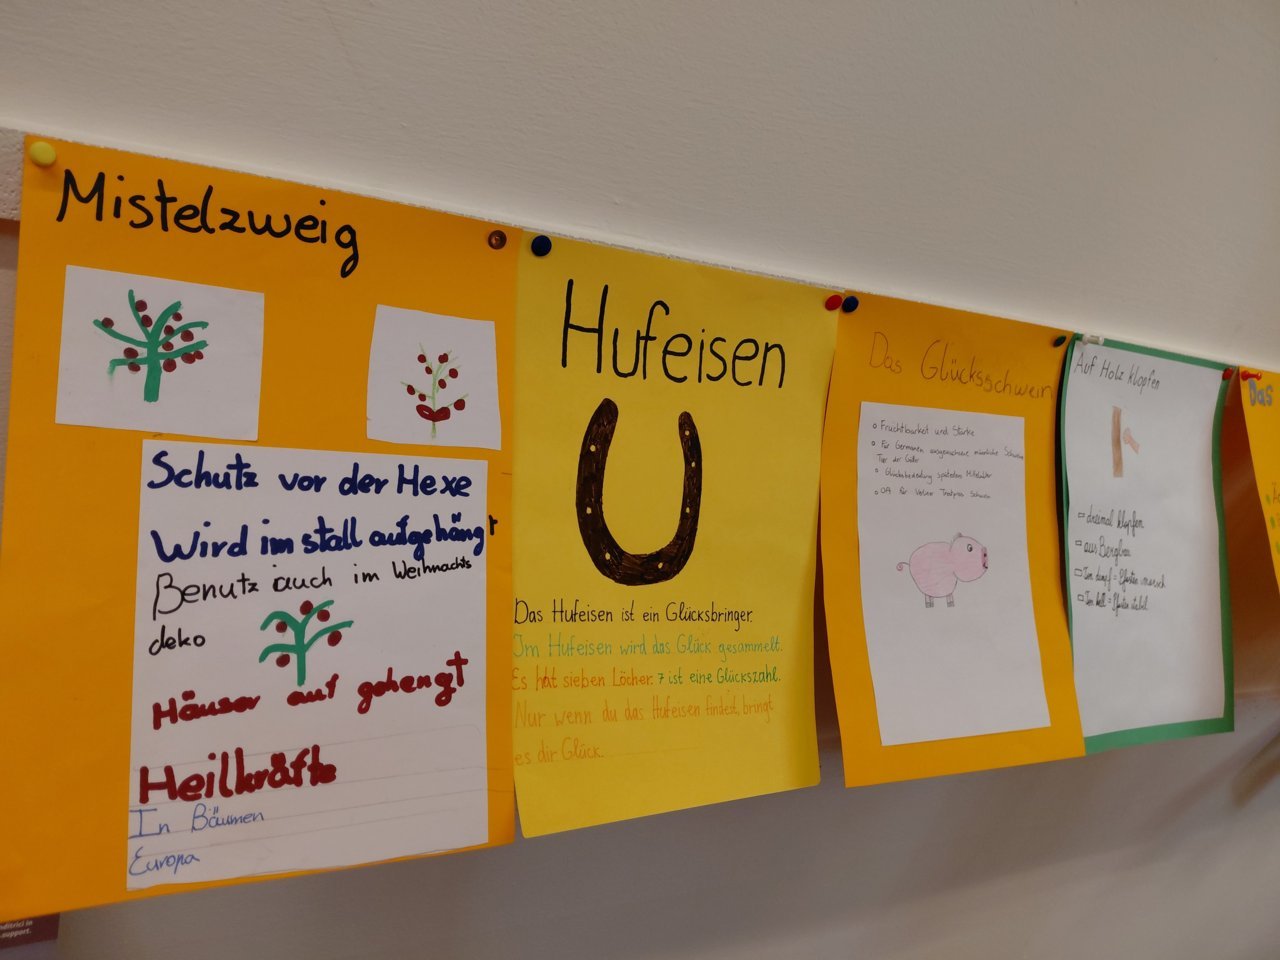 Mistelzweig
Schutz vor der Hexe
Wird im stall aufgehängt
Benutz auch im Weihnachts
deko
Häuser auf gehengt
Heilkräfte
In Bäumen
Europa
Hufeisen
Das Hufeisen ist ein Glücksbringer.
Im Hufeisen wird das Glück gesammelt.
Es hat sieben Löcher. 7 ist eine Glückszahl.
Nur wenn du das Hufeisen findest, bringt
es dir Glück.
Das Glücksschwein
Fruchtbarkeit und Stärke
Für Germanen ausgewachsene männliche Schweine
Tier der Götter
Glücksbedeutung spätestem Mittelalter
Oft für Schwein
Auf Holz klopfen
dreimal klopfen
aus Bergbau
Ton dumpf = Pfosten morsch
Ton hell = Pfosten stabil
Das
nditrici in
.support.